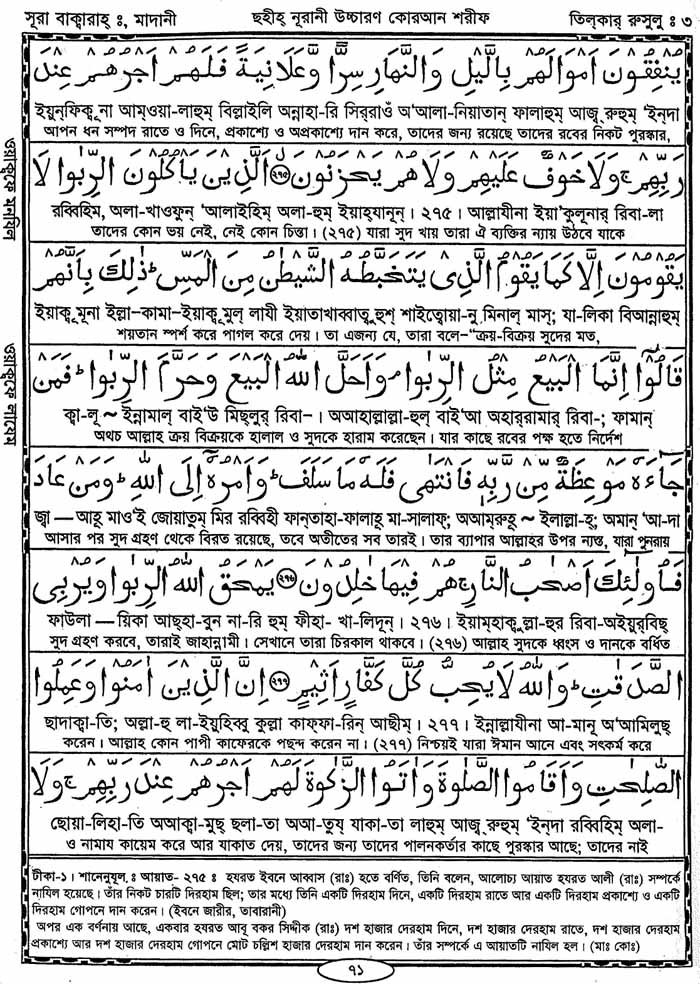 সূরা বাক্বারাহ্ ঃ, মাদানী
ছহীহ্ নূরানী উচ্চারণ কোরআন শরীফ
তিল্কার্ রুসুলু ঃ ৩
يُنْفِقُوْنَ اَمْوَالَهُمْ بِالَّيْلِ وَالنَّهَارِ سِرًّا وَّعَلَانِيَةً فَلَهُمْ اَجْرُهُمْ عِنْدَ
ইয়ুন্‌ফিকূ না আম্ওয়া-লাহুম্ বিল্লাইলি অন্নাহা-রি সির্‌রাওঁ অ'আলা-নিয়াতান্ ফালাহুম্ আজ্ব্ রুহুম্ 'ইন্‌দা
আপন ধন সম্পদ রাতে ও দিনে, প্রকাশ্যে ও অপ্রকাশ্যে দান করে, তাদের জন্য রয়েছে তাদের রবের নিকট পুরস্কার,
رَبِّهِمْ ۚ وَلَا خَوْفٌ عَلَيْهِمْ وَلَا هُمْ يَحْزَنُوْنَ ﴿٢٧٤﴾ اَلَّذِيْنَ يَاْكُلُوْنَ الرِّبٰوا لَا
রব্বিহিম্, অলা-খাওফুন্ 'আলাইহিম্ অলা-হুম্ ইয়াহ্‌যানূন্। ২৭৫। আল্লাযীনা ইয়া'কুলূনার্ রিবা-লা
তাদের কোন ভয় নেই, নেই কোন চিন্তা। (২৭৫) যারা সুদ খায় তারা ঐ ব্যক্তির ন্যায় উঠবে যাকে
يَقُوْمُوْنَ اِلَّا كَمَا يَقُوْمُ الَّذِيْ يَتَخَبَّطُهُ الشَّيْطٰنُ مِنَ الْمَسِّ ؕ ذٰلِكَ بِاَنَّهُمْ
ইয়াক্বূ মূনা ইল্লা-কামা-ইয়াকূ মুল্ লাযী ইয়াতাখাব্বাতু হুশ্ শাইত্বোয়া-নু মিনাল্ মাস্; যা-লিকা বিআন্নাহুম্
শয়তান স্পর্শ করে পাগল করে দেয়। তা এজন্য যে, তারা বলে-“ক্রয়-বিক্রয় সুদের মত,
قَالُوْٓا اِنَّمَا الْبَيْعُ مِثْلُ الرِّبٰوا ۘ وَاَحَلَّ اللّٰهُ الْبَيْعَ وَحَرَّمَ الرِّبٰوا ؕ فَمَنْ
ক্বা-লূ ~ ইন্নামাল্ বাই'উ মিছ্‌লুর্ রিবা-। অআহাল্লাল্লা-হুল্ বাই'আ অহার্‌রামার্ রিবা-; ফামান্
অথচ আল্লাহ ক্রয় বিক্রয়কে হালাল ও সুদকে হারাম করেছেন। যার কাছে রবের পক্ষ হতে নির্দেশ
جَآءَهٗ مَوْعِظَةٌ مِّنْ رَّبِّهٖ فَانْتَهٰى فَلَهٗ مَا سَلَفَ ؕ وَاَمْرُهٗٓ اِلَى اللّٰهِ ؕ وَمَنْ عَادَ
জ্বা — আহূ মাও'ই জোয়াতুম্ মির রব্বিহী ফান্‌তাহা-ফালাহূ মা-সালাফ্; অআম্‌রুহূ ~ ইলাল্লা-হ্; অমান্ 'আ-দা
আসার পর সুদ গ্রহণ থেকে বিরত রয়েছে, তবে অতীতের সব তারই। তার ব্যাপার আল্লাহর উপর ন্যস্ত, যারা পুনরায়
فَاُولٰٓئِكَ اَصْحٰبُ النَّارِ ۚ هُمْ فِيْهَا خٰلِدُوْنَ ﴿٢٧٥﴾ يَمْحَقُ اللّٰهُ الرِّبٰوا وَيُرْبِي
ফাউলা — য়িকা আছ্‌হা-বুন না-রি হুম্ ফীহা- খা-লিদূন্। ২৭৬। ইয়াম্‌হাক্বু ল্লা-হুর রিবা-অইয়ুর্‌বিছ্
সুদ গ্রহণ করবে, তারাই জাহান্নামী। সেখানে তারা চিরকাল থাকবে। (২৭৬) আল্লাহ সুদকে ধ্বংস ও দানকে বর্ধিত
الصَّدَقٰتِ ؕ وَاللّٰهُ لَا يُحِبُّ كُلَّ كَفَّارٍ اَثِيْمٍ ﴿٢٧٦﴾ اِنَّ الَّذِيْنَ اٰمَنُوْا وَعَمِلُوا
ছাদাক্বা-তি; অল্লা-হু লা-ইয়ুহিব্বু কুল্লা কাফ্‌ফা-রিন্ আছীম্। ২৭৭। ইন্নাল্লাযীনা আ-মানূ অ'আমিলুছ্
করেন। আল্লাহ কোন পাপী কাফেরকে পছন্দ করেন না। (২৭৭) নিশ্চয়ই যারা ঈমান আনে এবং সৎকর্ম করে
الصّٰلِحٰتِ وَاَقَامُوا الصَّلٰوةَ وَاٰتَوُا الزَّكٰوةَ لَهُمْ اَجْرُهُمْ عِنْدَ رَبِّهِمْ ۚ وَلَا
ছোয়া-লিহা-তি অআক্বা-মুছ্ ছলা-তা অআ-তুয্ যাকা-তা লাহুম্ আজ্ব্ রুহুম্ 'ইন্‌দা রব্বিহিম্ অলা-
ও নামায কায়েম করে আর যাকাত দেয়, তাদের জন্য তাদের পালনকর্তার কাছে পুরস্কার আছে; তাদের নাই
টীকা-১। শানেনুযূল, ঃ আয়াত- ২৭৫ ঃ হযরত ইবনে আব্বাস (রাঃ) হতে বর্ণিত, তিনি বলেন, আলোচ্য আয়াত হযরত আলী (রাঃ) সম্পর্কে
নাযিল হয়েছে। তাঁর নিকট চারটি দিরহাম ছিল; তার মধ্যে তিনি একটি দিরহাম দিনে, একটি দিরহাম রাতে আর একটি দিরহাম প্রকাশ্যে ও একটি
দিরহাম গোপনে দান করেন। (ইবনে জারীর, তাবারানী)
অপর এক বর্ণনায় আছে, একবার হযরত আবূ বকর সিদ্দীক (রাঃ) দশ হাজার দেরহাম দিনে, দশ হাজার দেরহাম রাতে, দশ হাজার দেরহাম
প্রকাশ্যে আর দশ হাজার দেরহাম গোপনে মোট চল্লিশ হাজার দেরহাম দান করেন। তাঁর সম্পর্কে এ আয়াতটি নাযিল হল। (মাঃ কোঃ)
৭১
ওয়াক্ফে মনযিল
ওয়াক্ফে লাযেম